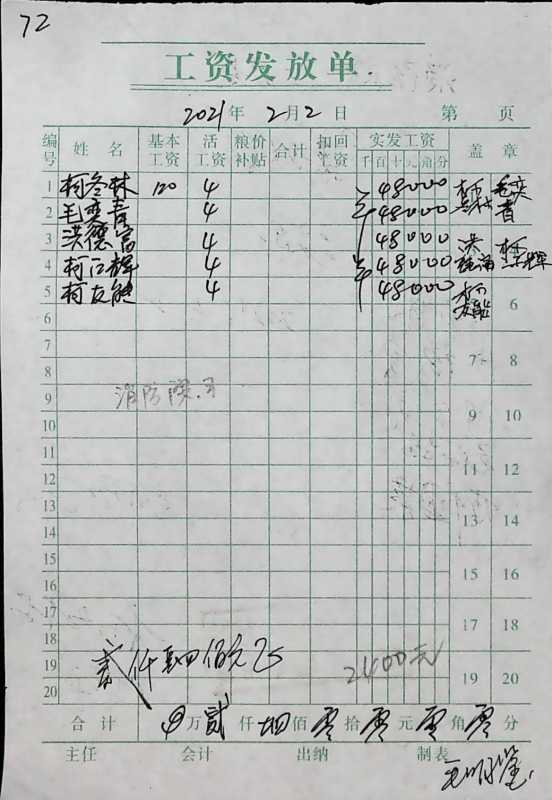 72
工资发放单
2021年 2月2日 第 页
编号 姓名 基本工资 活工资 粮价补贴 合计 扣回工资 实发工资 千百十元角分 盖章
1 柯冬林 120 4 48000
2 毛奕青 4 48000 毛奕青
3 洪德富 4 48000
4 柯江辉 4 48000
5 柯友能 4 48000 柯友能 6
6
7 7 8
8
9 消防 9 10
10
11 11 12
12
13 13 14
14
15 15 16
16
17 17 18
18
19 贰仟肆佰元正 2400元 19 20
20
合计 万贰仟肆佰零拾零元零角零分
主任 会计 出纳 制表